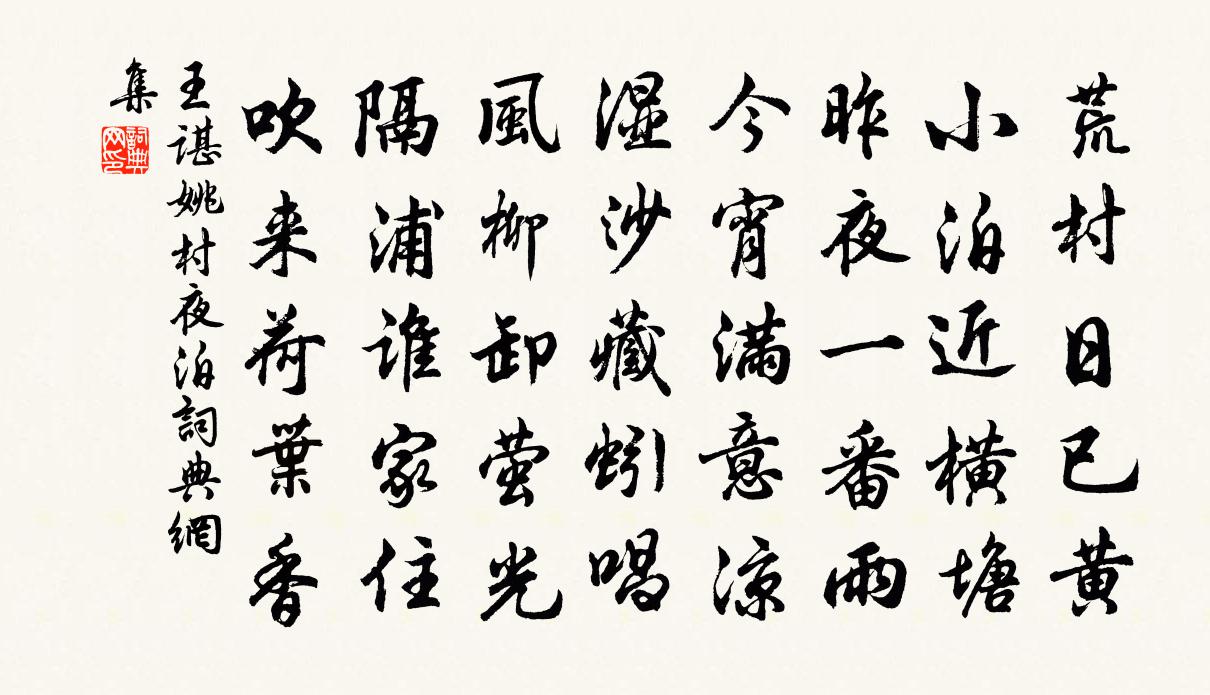 荒村日已黄
小泊近横塘
昨夜一番雨
今宵满意凉
湿沙藏蚓唱
風柳卸萤光
隔浦谁家住
吹来荷葉香
王谌姚村夜泊詞典網
集
詞典
网印